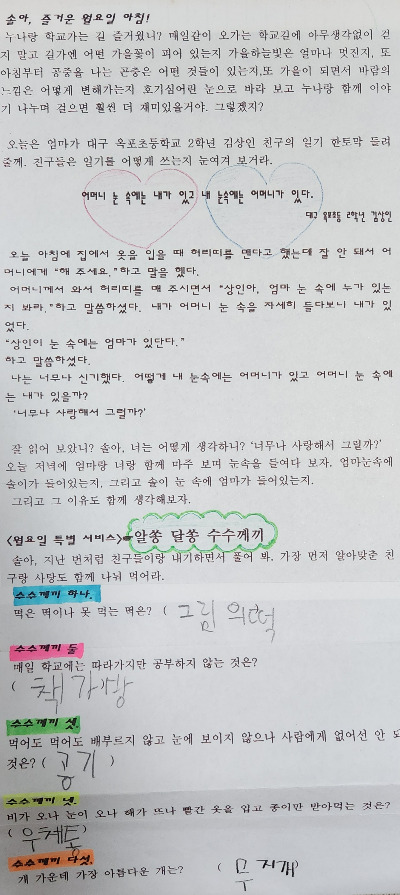 솔아, 즐거운 월요일 아침!
누나랑 학교가는 길 즐거웠니? 매일같이 오가는 학교길에 아무생각없이 걷
지 말고 길가엔 어떤 가을꽃이 피어 있는지 가을하늘빛은 얼마나 멋진지, 또
아침부터 공중을 나는 곤충은 어떤 것들이 있는지,또 가을이 되면서 바람의
느낌은 어떻게 변해가는지 호기심어린 눈으로 바라 보고 누나랑 함께 이야
기 나누며 걸으면 훨씬 더 재미있을거야. 그렇겠지?
오늘은 엄마가 대구 옥포초등학교 2학년 김상인 친구의 일기 한토막 들려
줄께. 친구들은 일기를 어떻게 쓰는지 눈여겨 보거라.
어머니 눈 속에는 내가 있고 내 눈속에는 어머니가 있다.
대구 옥포초등 2학년 김상인
오늘 아침에 집에서 옷을 입을 때 허리띠를 맨다고 했는데 잘 안 돼서 어
머니에게 "해 주세요."하고 말을 했다.
어머니께서 와서 허리띠를 매 주시면서 "상인아, 엄마 눈 속에 누가 있는
지 봐라."하고 말씀하셨다. 내가 어머니 눈 속을 자세히 들다보니 내가 있
었다.
"상인이 눈 속에는 엄마가 있단다."
하고 말씀하셨다.
나는 너무나 신기했다. 어떻게 내 눈속에는 어머니가 있고 어머니 눈 속에
는 내가 있을까?
'너무나 사랑해서 그럴까?'
잘 읽어 보았니? 솔아, 너는 어떻게 생각하니? '너무나 사랑해서 그럴까?'
오늘 저녁에 엄마랑 너랑 함께 마주 보며 눈속을 들여다 보자. 엄마눈속에
솔이가 들어있는지, 그리고 솔이 눈 속에 엄마가 들어있는지.
그리고 그 이유도 함께 생각해보자.
<월요일 특별 서비스> 알쏭 달쏭 수수께끼
솔아, 지난 번처럼 친구들이랑 내기하면서 풀어 봐. 가장 먼저 알아맞춘 친
구랑 사탕도 함께 나눠 먹어라.
수수께끼 하나.
떡은 떡이나 못 먹는 떡은? ( 그림 의떡
수수께끼 둘
매일 학교에는 따라가지만 공부하지 않는 것은?
( 책가방
수수께끼 셋.
먹어도 먹어도 배부르지 않고 눈에 보이지 않으나 사람에게 없어선 안 되
것은? ( 공기 )
수수께끼 넷.
비가 오나 눈이 오나 해가 뜨나 빨간 옷을 입고 종이만 받아먹는 것은?
( 우체통 )
수수께끼 다섯.
개 가운데 가장 아름다운 개는? ( 무지개 )